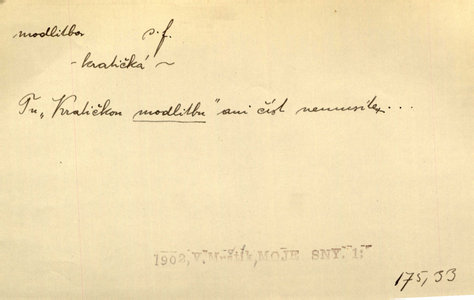 modlitba s. f.
- kratičká ~
Tu „Kratičkou modlitbu" ani číst nemusíte...
1902, V. Mrštík, MOJE SNY. 1:
175, 33